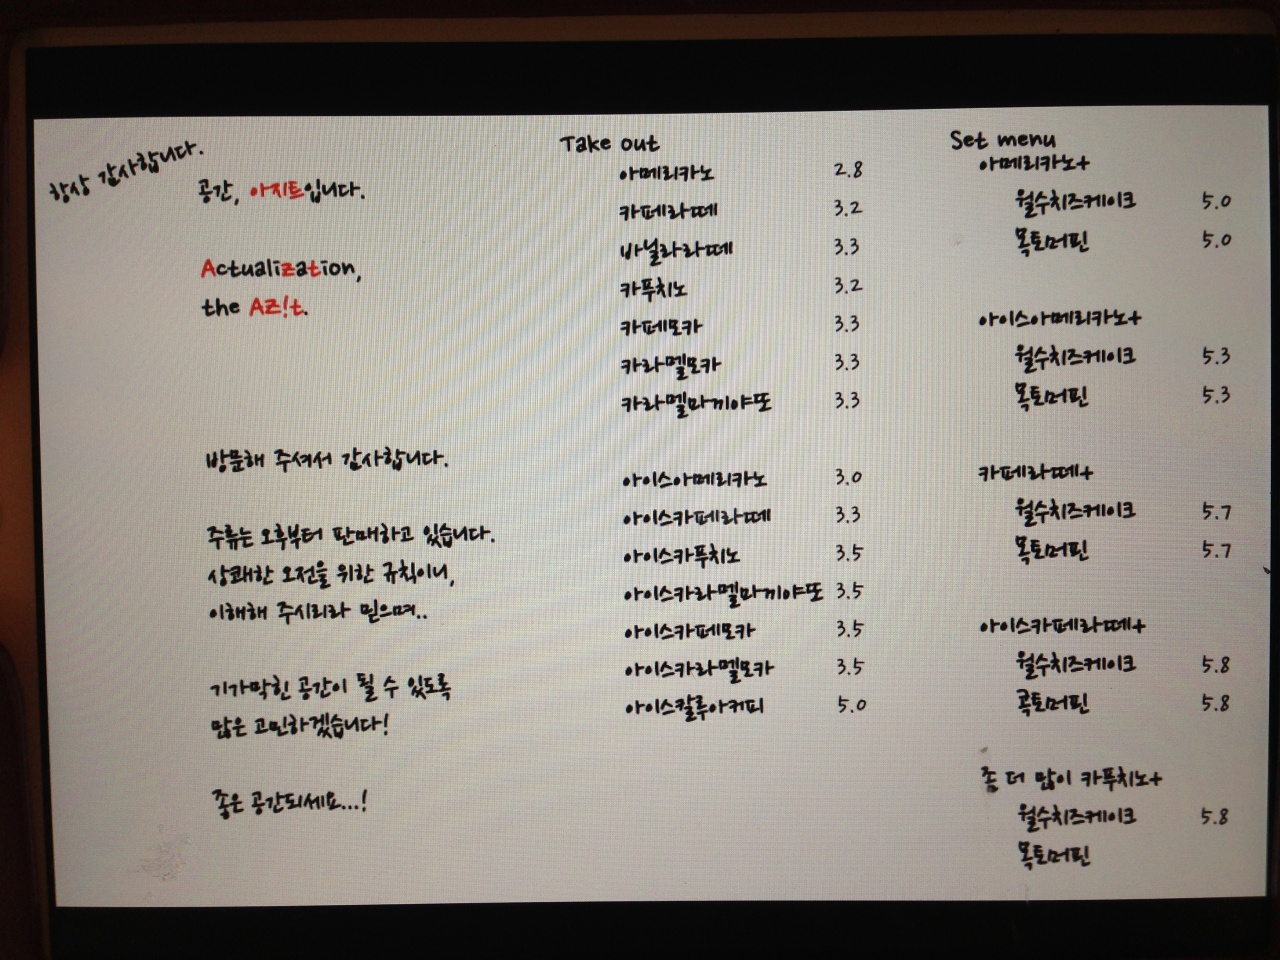 항상 감사합니다.
공간, 아지트입니다.
Actualization,
the AZ!t.
방문해 주셔서 감사합니다.
주류는 오후부터 판매하고 있습니다.
상쾌한 오전을 위한 규칙이니,
이해해 주시리라 믿으며..
기가막힌 공간이 될 수 있도록
많은 고민하겠습니다!
좋은 공간되세요...!
Take out
아메리카노 2.8
카페라떼 3.2
바닐라라떼 3.3
카푸치노 3.2
카페모카 3.3
카라멜모카 3.3
카라멜마끼야또 3.3
아이스아메리카노 3.0
아이스카페라떼 3.3
아이스카푸치노 3.5
아이스카라멜마끼야또 3.5
아이스카페모카 3.5
아이스카라멜모카 3.5
아이스칼루아커피 5.0
Set menu
아메리카노+
월수치즈케이크 5.0
목토머핀 5.0
아이스아메리카노+
월수치즈케이크 5.3
목토머핀 5.3
카페라떼+
월수치즈케이크 5.7
목토머핀 5.7
아이스카페라떼+
월수치즈케이크 5.8
콕토머핀 5.8
좀 더 많이 카푸치노+
월수치즈케이크 5.8
목토머핀